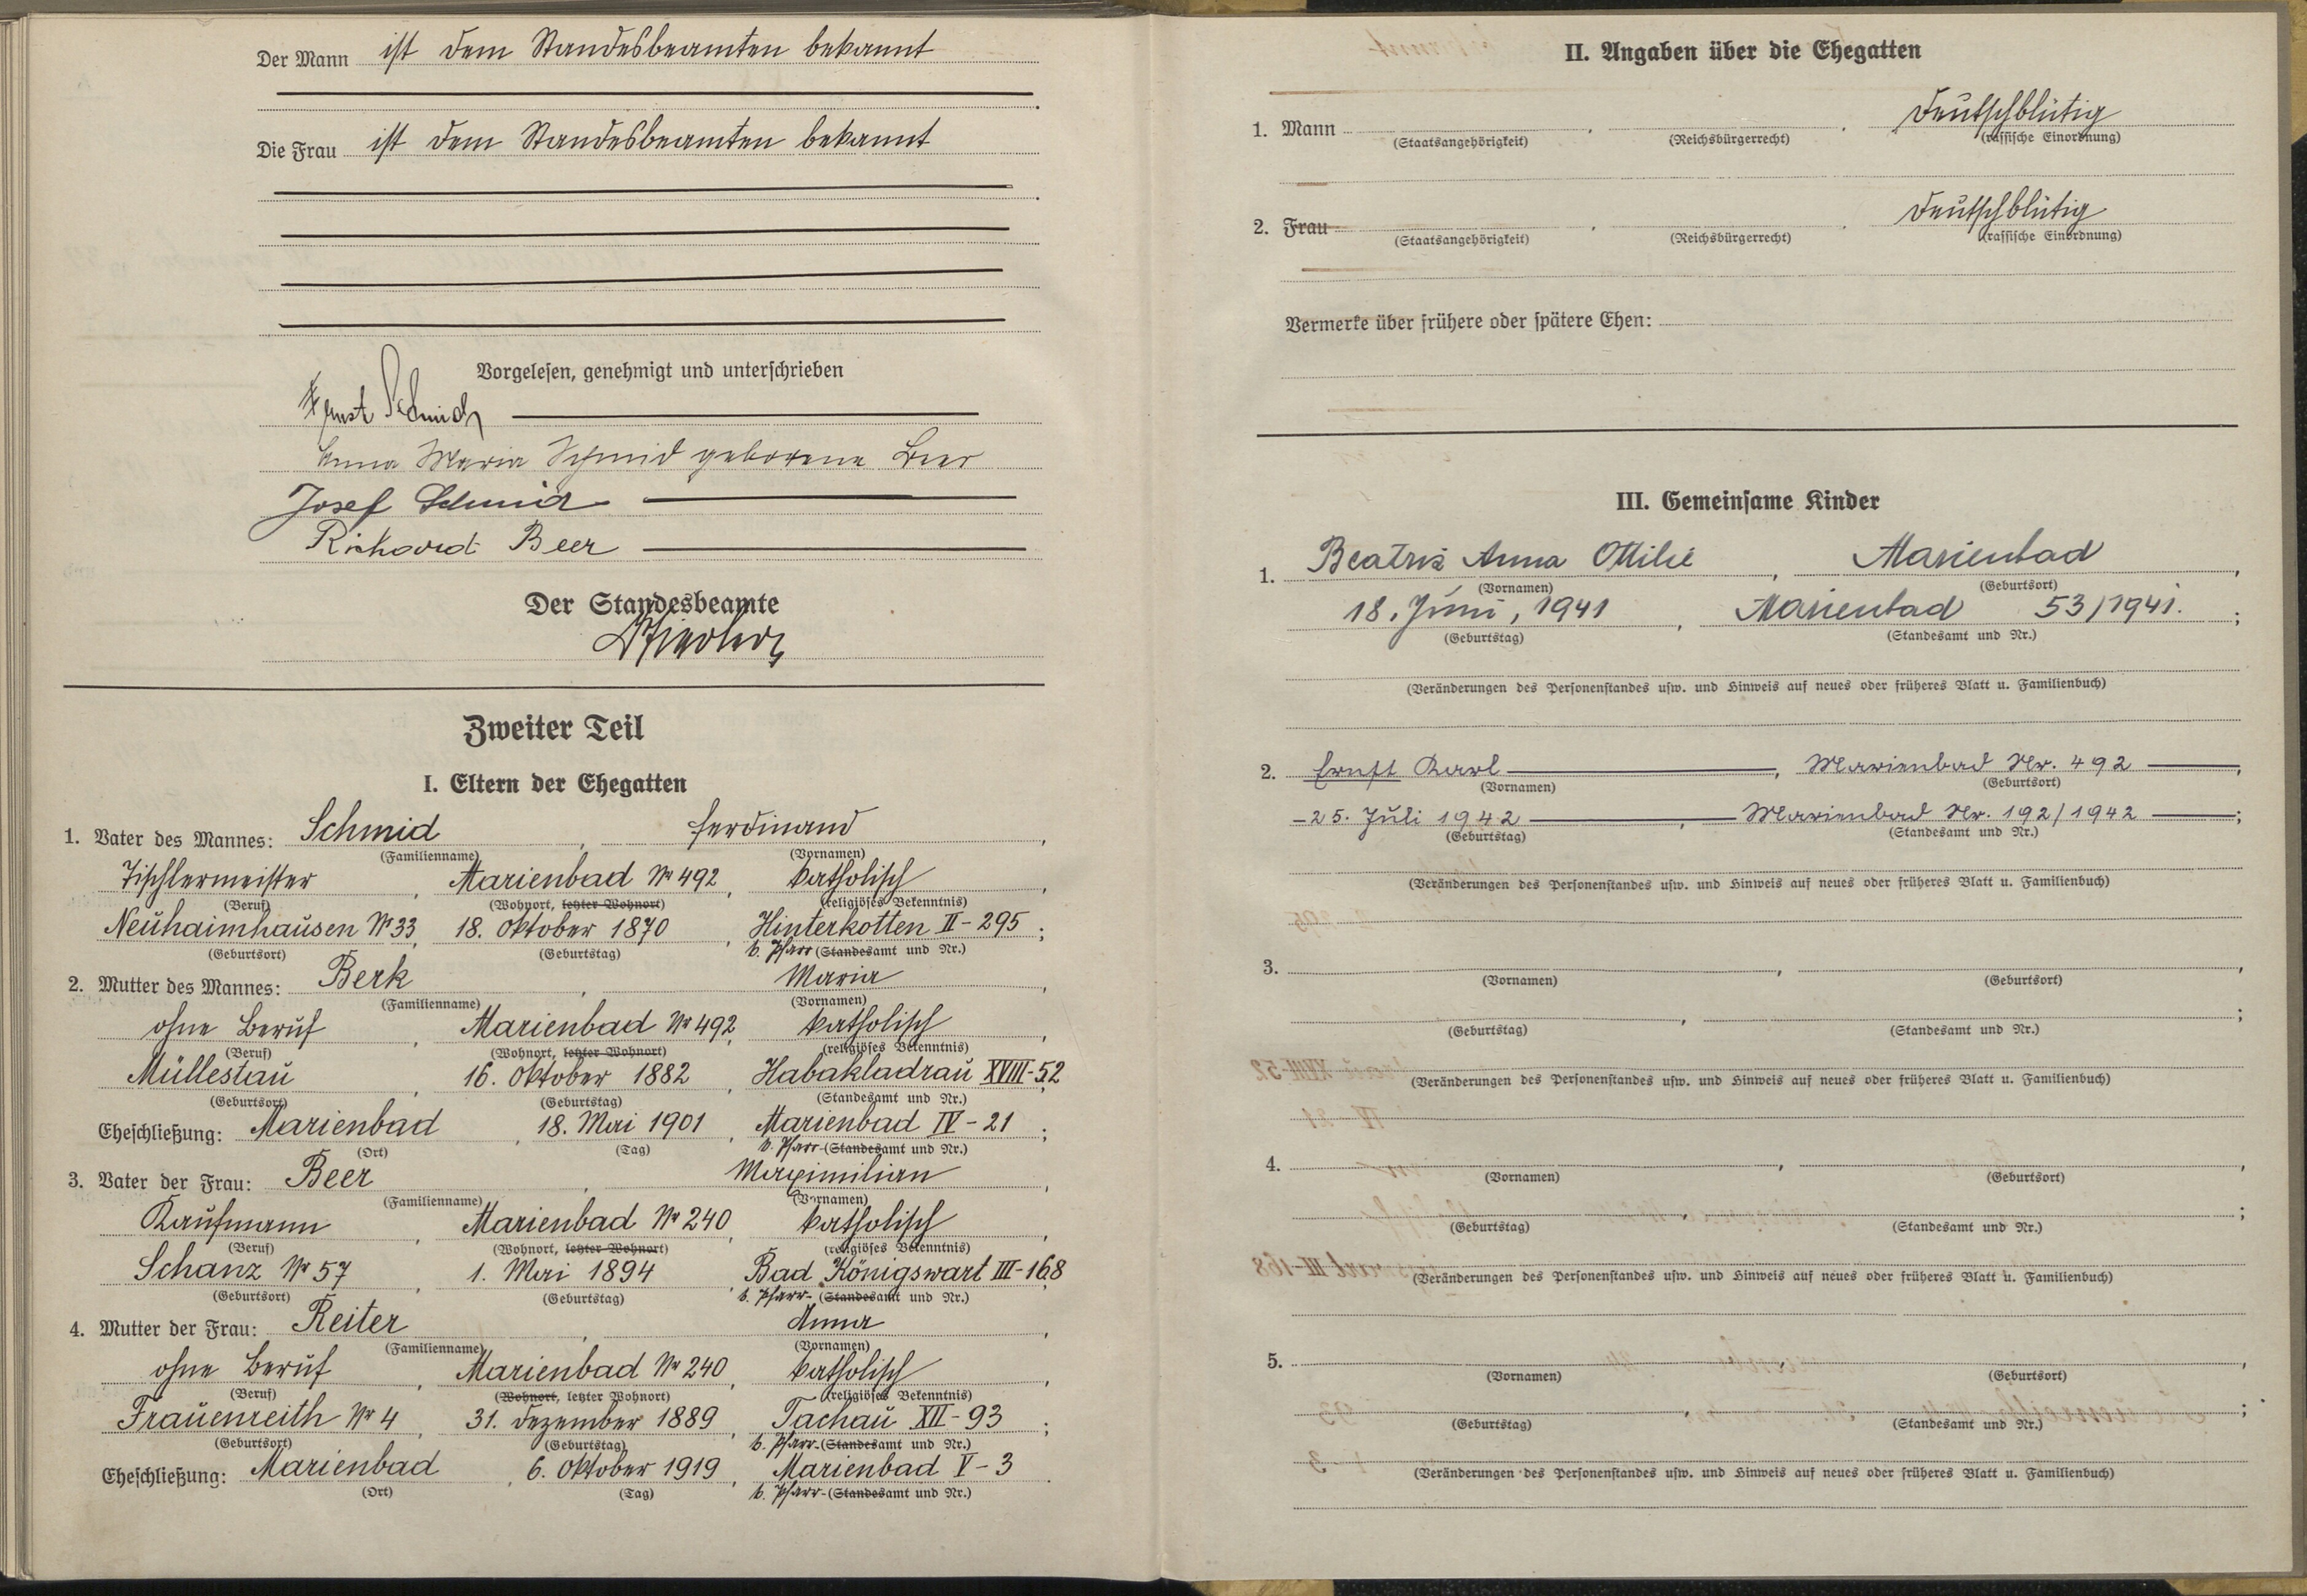 Der Mann ist dem Standesbeamten bekannt
Die Frau ist dem Standesbeamten bekannt
Vorgelesen, genehmigt und unterschrieben
Ernst Schmid
Anna Maria Schmid geborene Beer
Josef Schmid
Richard Beer
Der Standesbeamte
Zweiter Teil
I. Eltern der Ehegatten
1. Vater des Mannes: Schmid, Ferdinand,
(Familienname) (Vornamen)
Tischlermeister, Marienbad Nr 492, katholisch,
(Beruf) (Wohnort, letzter Wohnort) (religiöses Bekenntnis)
Neuhaimhausen Nr 33, 18. Oktober 1870, Hinterkotten II-295;
(Geburtsort) (Geburtstag) b. Pfarr (Standesamt und Nr.)
2. Mutter des Mannes: Berk, Maria,
(Familienname) (Vornamen)
ohne Beruf, Marienbad Nr 492, katholisch,
(Beruf) (Wohnort, letzter Wohnort) (religiöses Bekenntnis)
Müllestau, 16. Oktober 1882, Habakladrau XVIII-52;
(Geburtsort) (Geburtstag) (Standesamt und Nr.)
Eheschließung: Marienbad, 18. Mai 1901, Marienbad IV-21;
(Ort) (Tag) b. Pfarr-(Standesamt und Nr.)
3. Vater der Frau: Beer, Maximilian,
(Familienname) (Vornamen)
Kaufmann, Marienbad Nr 240, katholisch,
(Beruf) (Wohnort, letzter Wohnort) (religiöses Bekenntnis)
Schanz Nr 57, 1. Mai 1894, Bad Königswart III-168;
(Geburtsort) (Geburtstag) b. Pfarr-(Standesamt und Nr.)
4. Mutter der Frau: Reiter, Anna,
(Familienname) (Vornamen)
ohne Beruf, Marienbad Nr 240, katholisch,
(Beruf) (Wohnort, letzter Wohnort) (religiöses Bekenntnis)
Frauenreith Nr 4, 31. Dezember 1889, Tachau XII-93;
(Geburtsort) (Geburtstag) b. Pfarr-(Standesamt und Nr.)
Eheschließung: Marienbad, 6. Oktober 1919, Marienbad V-3.
(Ort) (Tag) b. Pfarr-(Standesamt und Nr.)
II. Angaben über die Ehegatten
1. Mann , , Deutschblütig
(Staatsangehörigkeit) (Reichsbürgerrecht) (rassische Einordnung)
2. Frau , , Deutschblütig
(Staatsangehörigkeit) (Reichsbürgerrecht) (rassische Einordnung)
Vermerke über frühere oder spätere Ehen:
III. Gemeinsame Kinder
1. Beatrix Anna Ottilie, Marienbad,
(Vornamen) (Geburtsort)
18. Juni, 1941, Marienbad 53/1941.;
(Geburtstag) (Standesamt und Nr.)
(Veränderungen des Personenstandes usw. und Hinweis auf neues oder früheres Blatt u. Familienbuch)
2. Ernst Karl, Marienbad Nr. 492,
(Vornamen) (Geburtsort)
-25. Juli 1942, Marienbad Nr. 192/1942;
(Geburtstag) (Standesamt und Nr.)
(Veränderungen des Personenstandes usw. und Hinweis auf neues oder früheres Blatt u. Familienbuch)
3. , ,
(Vornamen) (Geburtsort)
, ;
(Geburtstag) (Standesamt und Nr.)
(Veränderungen des Personenstandes usw. und Hinweis auf neues oder früheres Blatt u. Familienbuch)
4. , ,
(Vornamen) (Geburtsort)
, ;
(Geburtstag) (Standesamt und Nr.)
(Veränderungen des Personenstandes usw. und Hinweis auf neues oder früheres Blatt u. Familienbuch)
5. , ,
(Vornamen) (Geburtsort)
, ;
(Geburtstag) (Standesamt und Nr.)
(Veränderungen des Personenstandes usw. und Hinweis auf neues oder früheres Blatt u. Familienbuch)